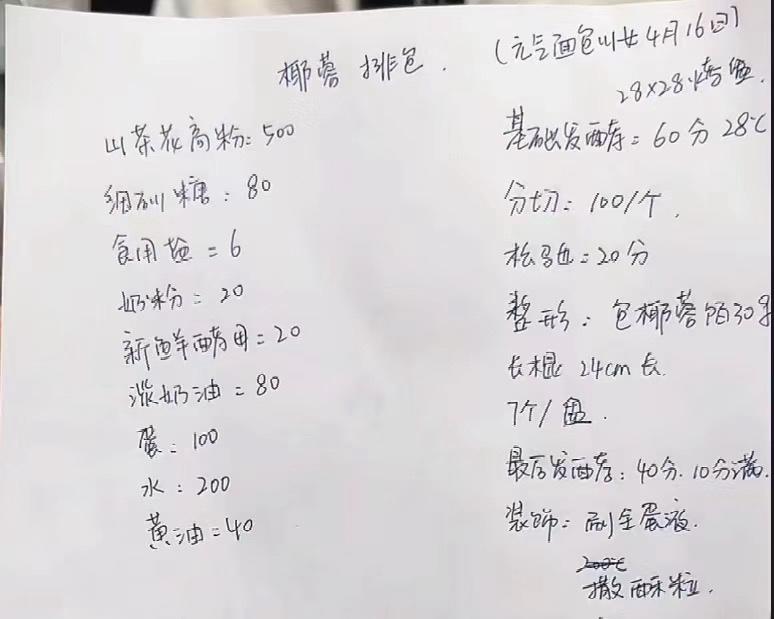 椰蓉排包. (元气面包山女 4月16日)
28×28烤盘.
山茶花高粉: 500
细砂糖: 80
食用盐 = 6
奶粉 = 20
新鲜酵母 = 20
淡奶油 = 80
蛋: 100
水: 200
黄油 = 40
基础发酵 = 60分 28℃
分切: 100/个.
松弛 = 20分
整形: 包椰蓉馅30g
长棍 24cm长.
7个/盘.
最后发酵: 40分. 10分满.
装饰: 刷全蛋液.
200℃
撒酥粒.